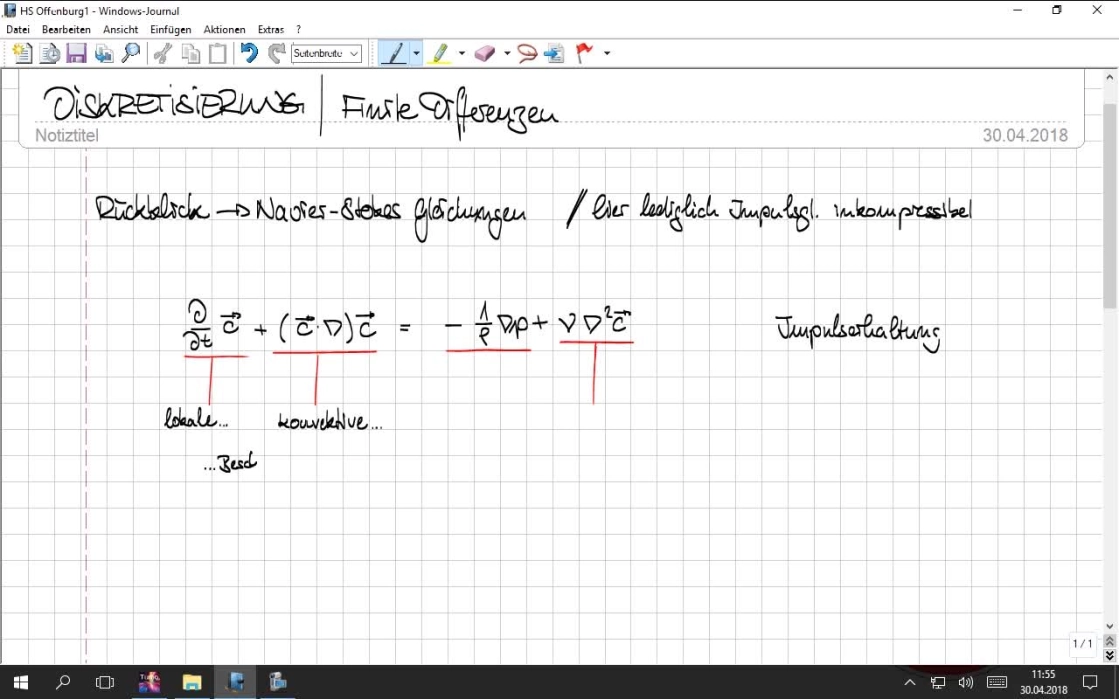 HS Offenburg1 - Windows-Journal
Datei Bearbeiten Ansicht Einfügen Aktionen Extras ?
Seitenbreite
DISKRETISIERUNG | Finite Differenzen
Notiztitel
30.04.2018
Rückblick → Navier-Stokes Gleichungen / hier lediglich Impulsgl. inkompressibel
∂/∂t c⃗ + (c⃗·∇)c⃗ = - 1/ρ ∇p + ν∇²c⃗ Impulserhaltung
lokale... konvektive...
...Besch
1 / 1
11:55
30.04.2018